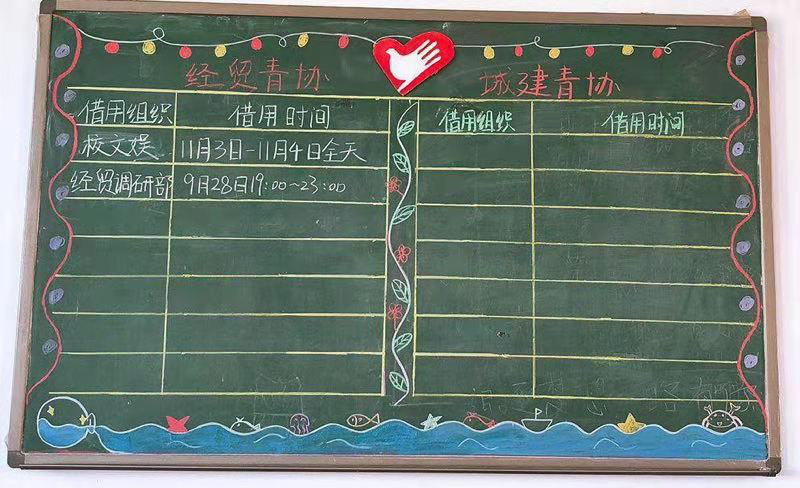 经贸青协
借用组织 借用时间
校文娱 11月3日-11月4日全天
经贸调研部 9月28日19:00~23:00
城建青协
借用组织 借用时间